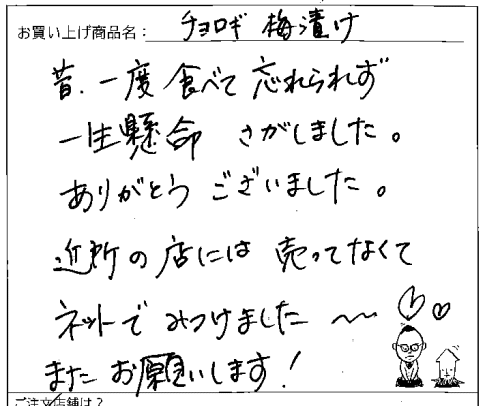 お買い上げ商品名： チョロギ 梅漬け
昔、一度食べて 忘れられず
一生懸命 さがしました。
ありがとう ございました。
近所の店には 売ってなくて
ネットで みつけました 〜〜
また お願いします！
ご注文店舗は？